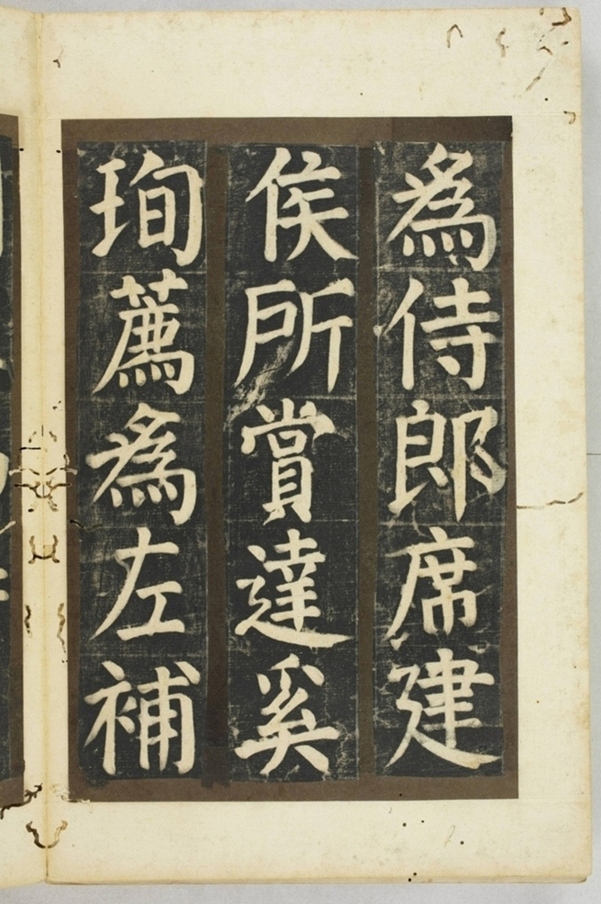 為侍郎席建
侯所賞達奚
珣薦為左補